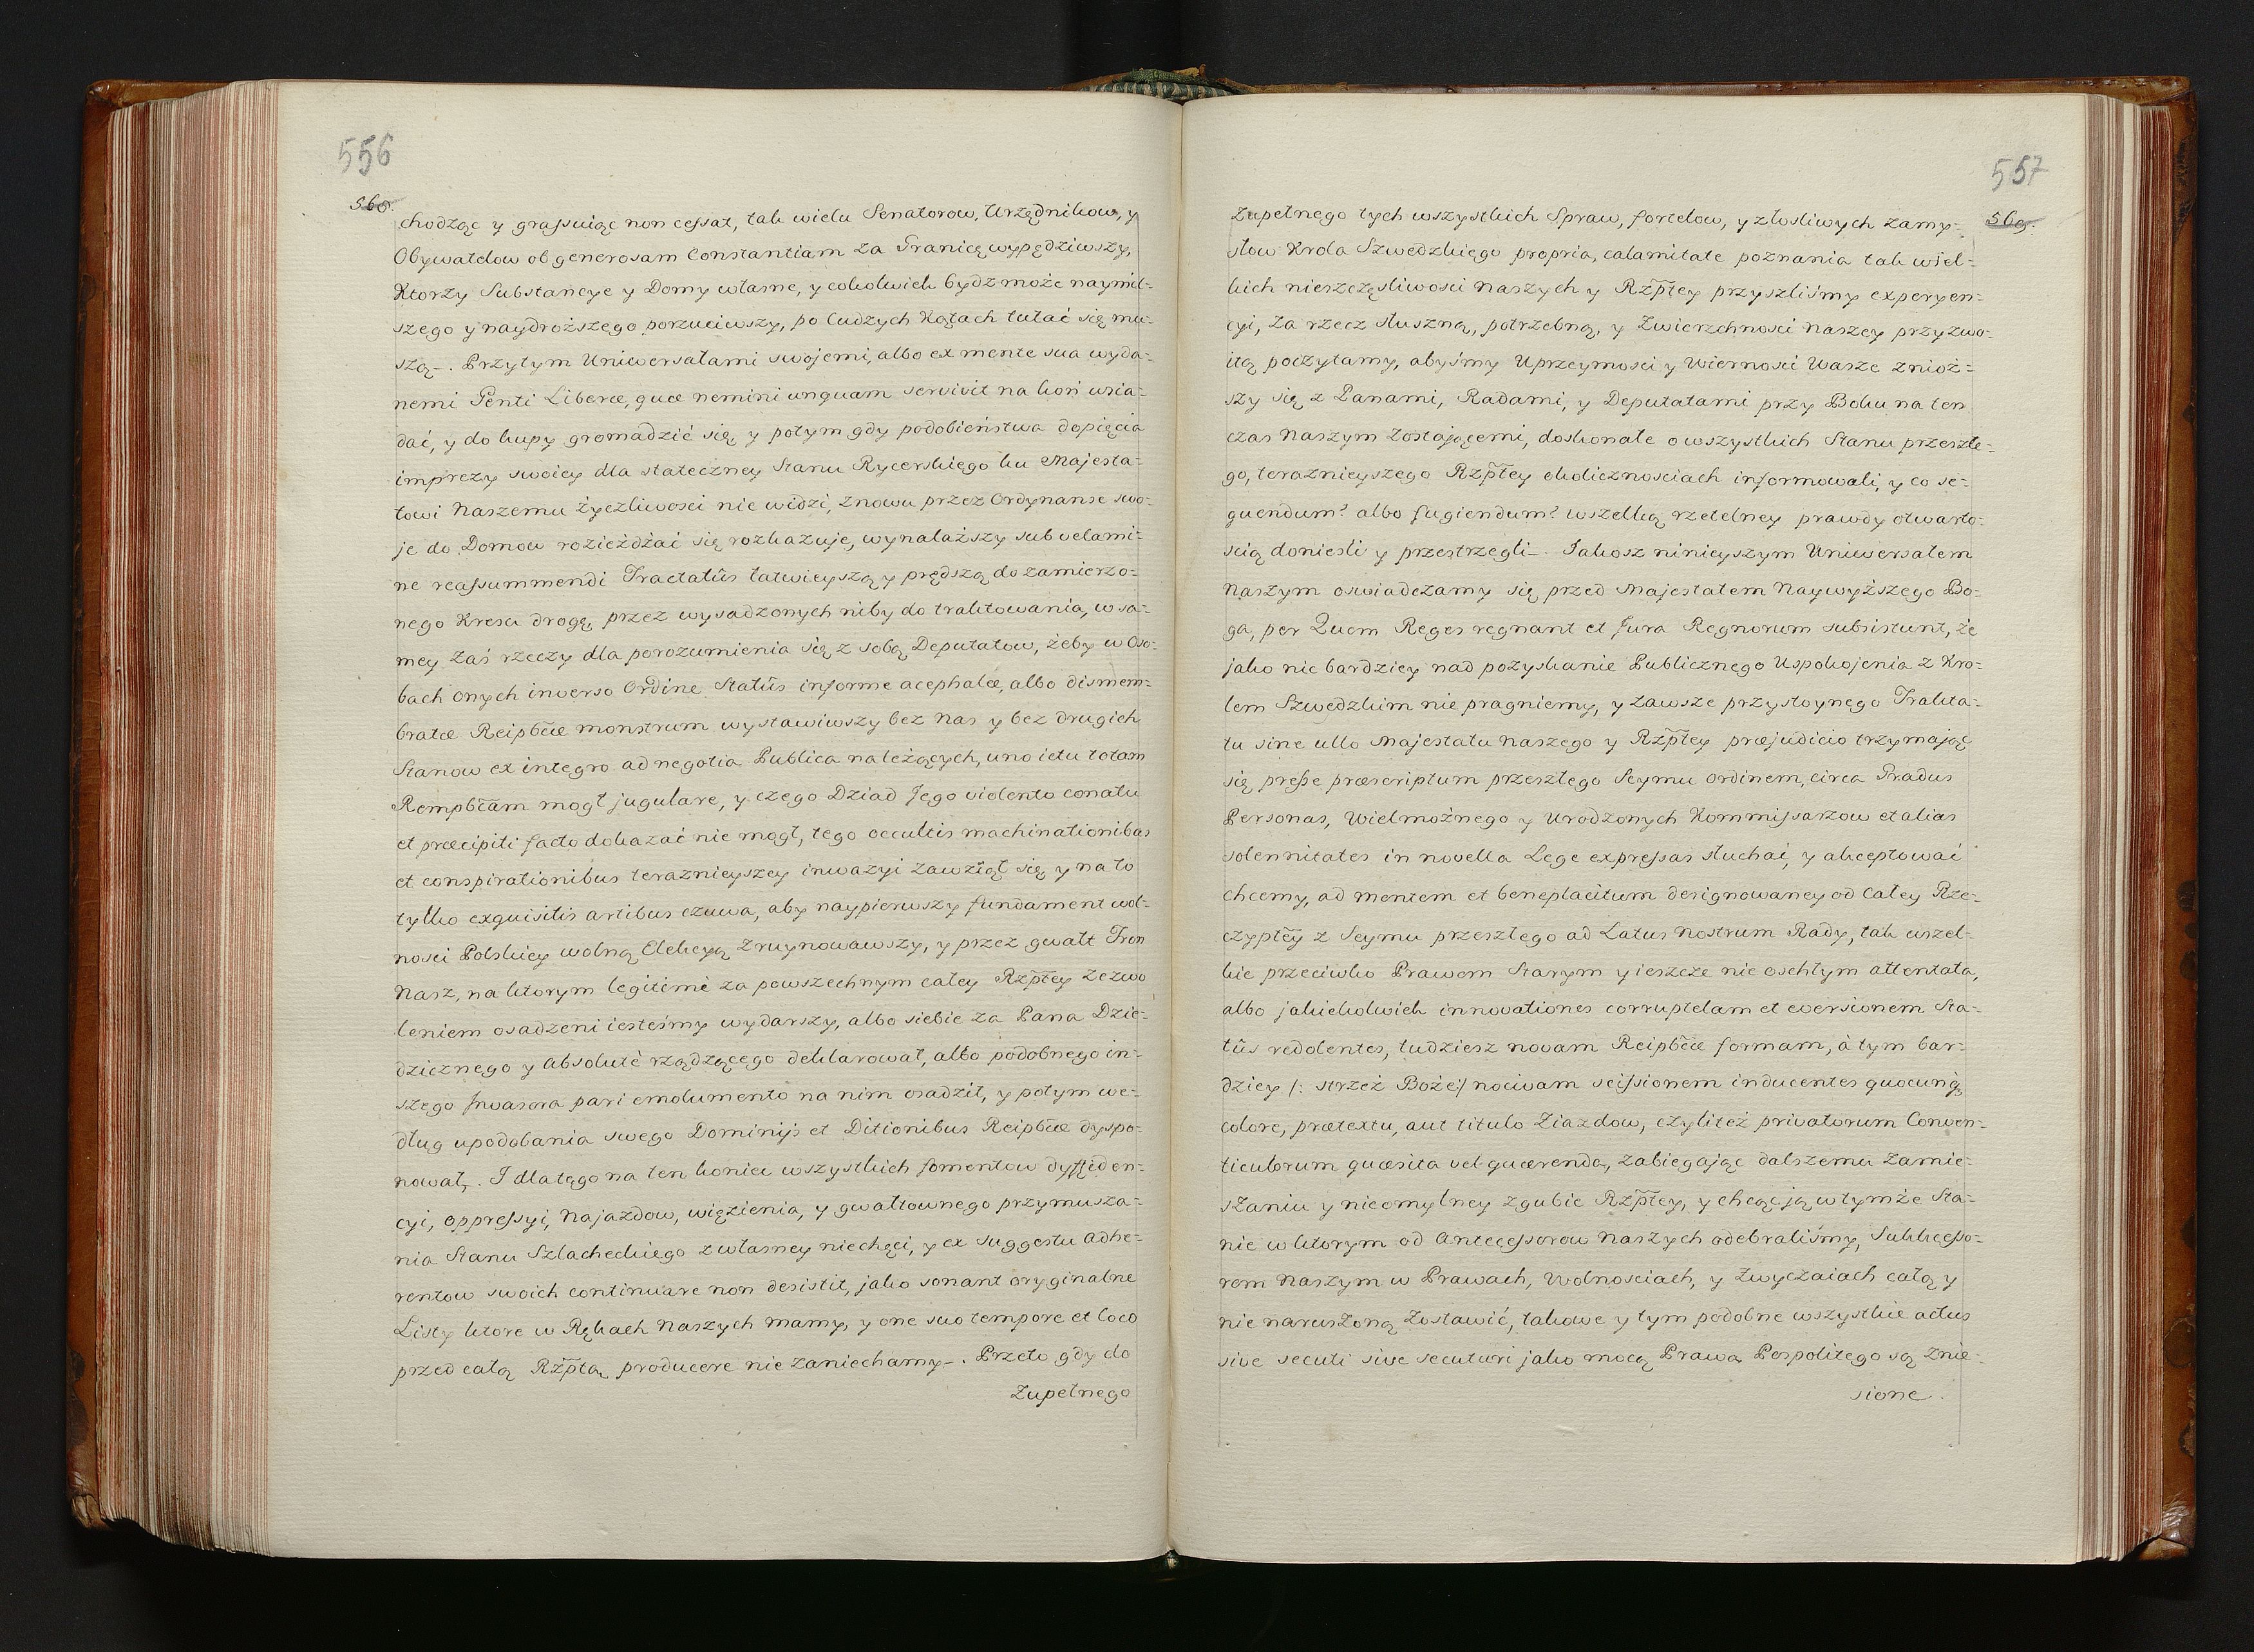 556
568.
chodząc y grassuiąc non cessat, tak wielu Senatorow, Urzędnikow, y
Obywatelow ob generosam Constantiam za Granicę wypędziwszy,
Ktorzy Substancye y Domy własne, y cokolwiek bydz może naymil-
szego y naydroższego porzuciwszy, po Cudzych Kątach tułać się mu-
szą-. Przytym Uniwersałami swojemi, albo ex mente sua wyda-
nemi Genti Liberæ, quæ nemini unquam servivit na koń wsia-
dać, y do kupy gromadzić się, y potym gdy podobieństwa dopięcia
imprezy swoiey dla stateczney Stanu Rycerskiego ku Majesta-
towi Naszemu życzliwosci nie widzi, znowu przez Ordynanse swo-
je do Domow rozieżdżać się rozkazuje, wynalaższy sub velami-
ne reassummendi Tractatûs łatwieyszą y prędszą do zamierzo-
nego Kresu drogę, przez wysadzonych niby do traktowania, w sa-
mey zaś rzeczy dla porozumienia się z sobą Deputatow, żeby w Oso-
bach onych inverso Ordine Statûs informe acephalæ, albo dismem-
bratæ Reipb̃cæ monstrum wystawiwszy bez Nas y bez drugich
Stanow ex integro ad negotia Publica należących, uno ictu totam
Rempb̃cam mogł jugulare, y czego Dziad Jego violento conatu
et præcipiti facto dokazać nie mogł, tego occultis machinationibus
et conspirationibus teraznieyszey inwazyi zawziął się, y na to
tylko exquisitis artibus czuwa, aby naypierwszy fundament wol-
nosci Polskiey wolną Elekcyą zruynowawszy, y przez gwałt Tron
Nasz, na ktorym legitimè za powszechnym całey Rzp̃tey zezwo
leniem osadzeni iesteśmy wydarszy, albo siebie za Pana Dzie-
dzicznego y absolutè rządzącego deklarował, albo podobnego in-
szego Jnvasora pari emolumento na nim osadził, y potym we-
dług upodobania swego Dominijs et Ditionibus Reipb̃cæ dyspo-
nował. I dla tego na ten koniec wszystkich fomentow dyffiden-
cyi, oppressyi, najazdow, więzienia, y gwałtownego przymusza-
nia Stanu Szlacheckiego z własney niechęci, y ex suggestu adhe-
rentow swoich continuare non desistit, jako sonant oryginalne
Listy ktore w Rękach Naszych mamy, y one suo tempore et loco
przed całą Rzp̃tą producere nie zaniechamy-. Przeto gdy do
Zupełnego
557
569.
Zupełnego tych wszystkich Spraw, fortelow, y złosliwych zamy-
słow Krola Szwedzkiego propria, calamitate poznania tak wiel-
kich nieszczęsliwosci Naszych y Rzp̃tey przyszliśmy experyen-
cyi, za rzecz słuszną, potrzebną, y Zwierzchnosci Naszey przyzwo-
itą poczytamy, abyśmy Uprzeymosci y Wiernosci Wasze zniož-
szy się z Panami, Radami, y Deputatami przy Boku na ten
czas Naszym zostającemi, doskonale o wszystkich Stanu przeszłe-
go, teraznieyszego Rzp̃tey okolicznosciach informowali, y co se-
quendum? albo fugiendum? wszelką rzetelney prawdy otwarto-
scią doniesli y przestrzegli-. Jakosz ninieyszym Uniwersałem
Naszym oswiadczamy się przed Majestatem Naywyższego Bo-
ga, per Quem Reges regnant et Jura Regnorum subsistunt, że
jako nic bardziey nad pozyskanie Publicznego Uspokojenia z Kro-
lem Szwedzkim nie pragniemy, y zawsze przystoynego Trakta-
tu sine ullo Majestatu Naszego y Rzp̃tey præjudicio trzymając
się presse præscriptum przeszłego Seymu Ordinem, circa Gradus
Personas, Wielmożnego y Urodzonych Kommissarzow et alias
solennitates in novella Lege expressas słuchać, y akceptować
chcemy, ad mentem et beneplacitum designowaney od Całey Rze-
czyptẽy z Seymu przeszłego ad Latus Nostrum Rady, tak wszel-
kie przeciwko Prawom Starym y ieszcze nie oschłym attentata,
albo jakiekolwiek innovationes corruptelam et eversionem Sta-
tûs redolentes, tudziesz novam Reipb̃cæ formam, à tym bar-
dziey /: strzeż Boże:/ nocivam scissionem inducentes quocunq;
colore, prætextu, aut titulo Ziazdow, czyli też privatorum Conven-
ticulorum quæsita vel quærenda, zabiegając dalszemu zamie-
szaniu y nieomylney zgubie Rzp̃tey, y chcąc ją w tymże Sta-
nie w ktorym od Antecessorow Naszych odebraliśmy, Sukkcesso-
rom Naszym w Prawach, Wolnosciach, y Zwyczaiach całą y
nie naruszoną zostawić, takowe y tym podobne wszystkie actus
sive secuti sive secuturi jako mocą Prawa Pospolitego są znie-
sione.